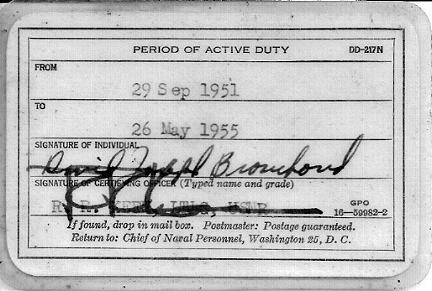 PERIOD OF ACTIVE DUTY DD-217N
FROM
29 Sep 1951
TO
26 May 1955
SIGNATURE OF INDIVIDUAL
David Joseph
SIGNATURE OF CERTIFYING OFFICER (Typed name and grade)
R. R. LTJG, USNR
GPO
16—59982-2
If found, drop in mail box. Postmaster: Postage guaranteed.
Return to: Chief of Naval Personnel, Washington 25, D. C.